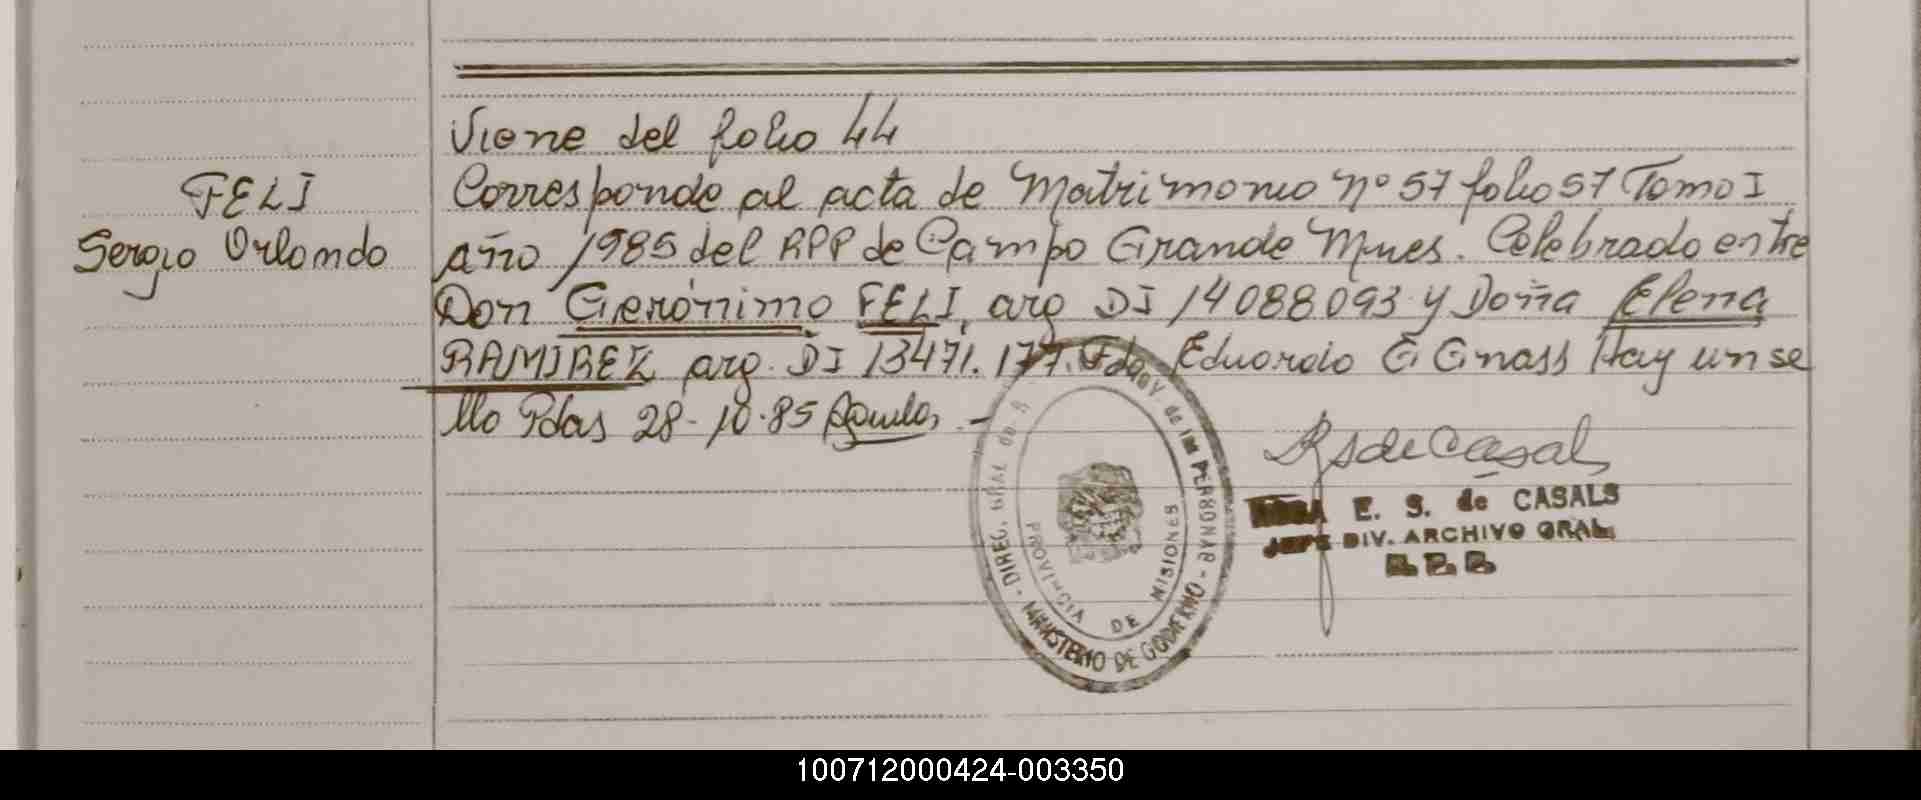 Viene del folio 44
FELI
Sergio Orlando
Corresponde al acta de Matrimonio Nº 57 folio 57 Tomo I
año 1985 del RPP de Campo Grande Mnes. Celebrado entre
Don Gerónimo FELI, arg DI 14088093 y Doña Elena
RAMIREZ arg. DI 13471.177. Fdo Eduardo G Gnass Hay un se
llo Pdas 28-10-85
DIREC. GRAL de de las PERSONAS - MINISTERIO DE GOBIERNO -
PROVINCIA DE MISIONES
E. S. de CASALS
JEFE DIV. ARCHIVO GRAL
R.P.P.
100712000424-003350